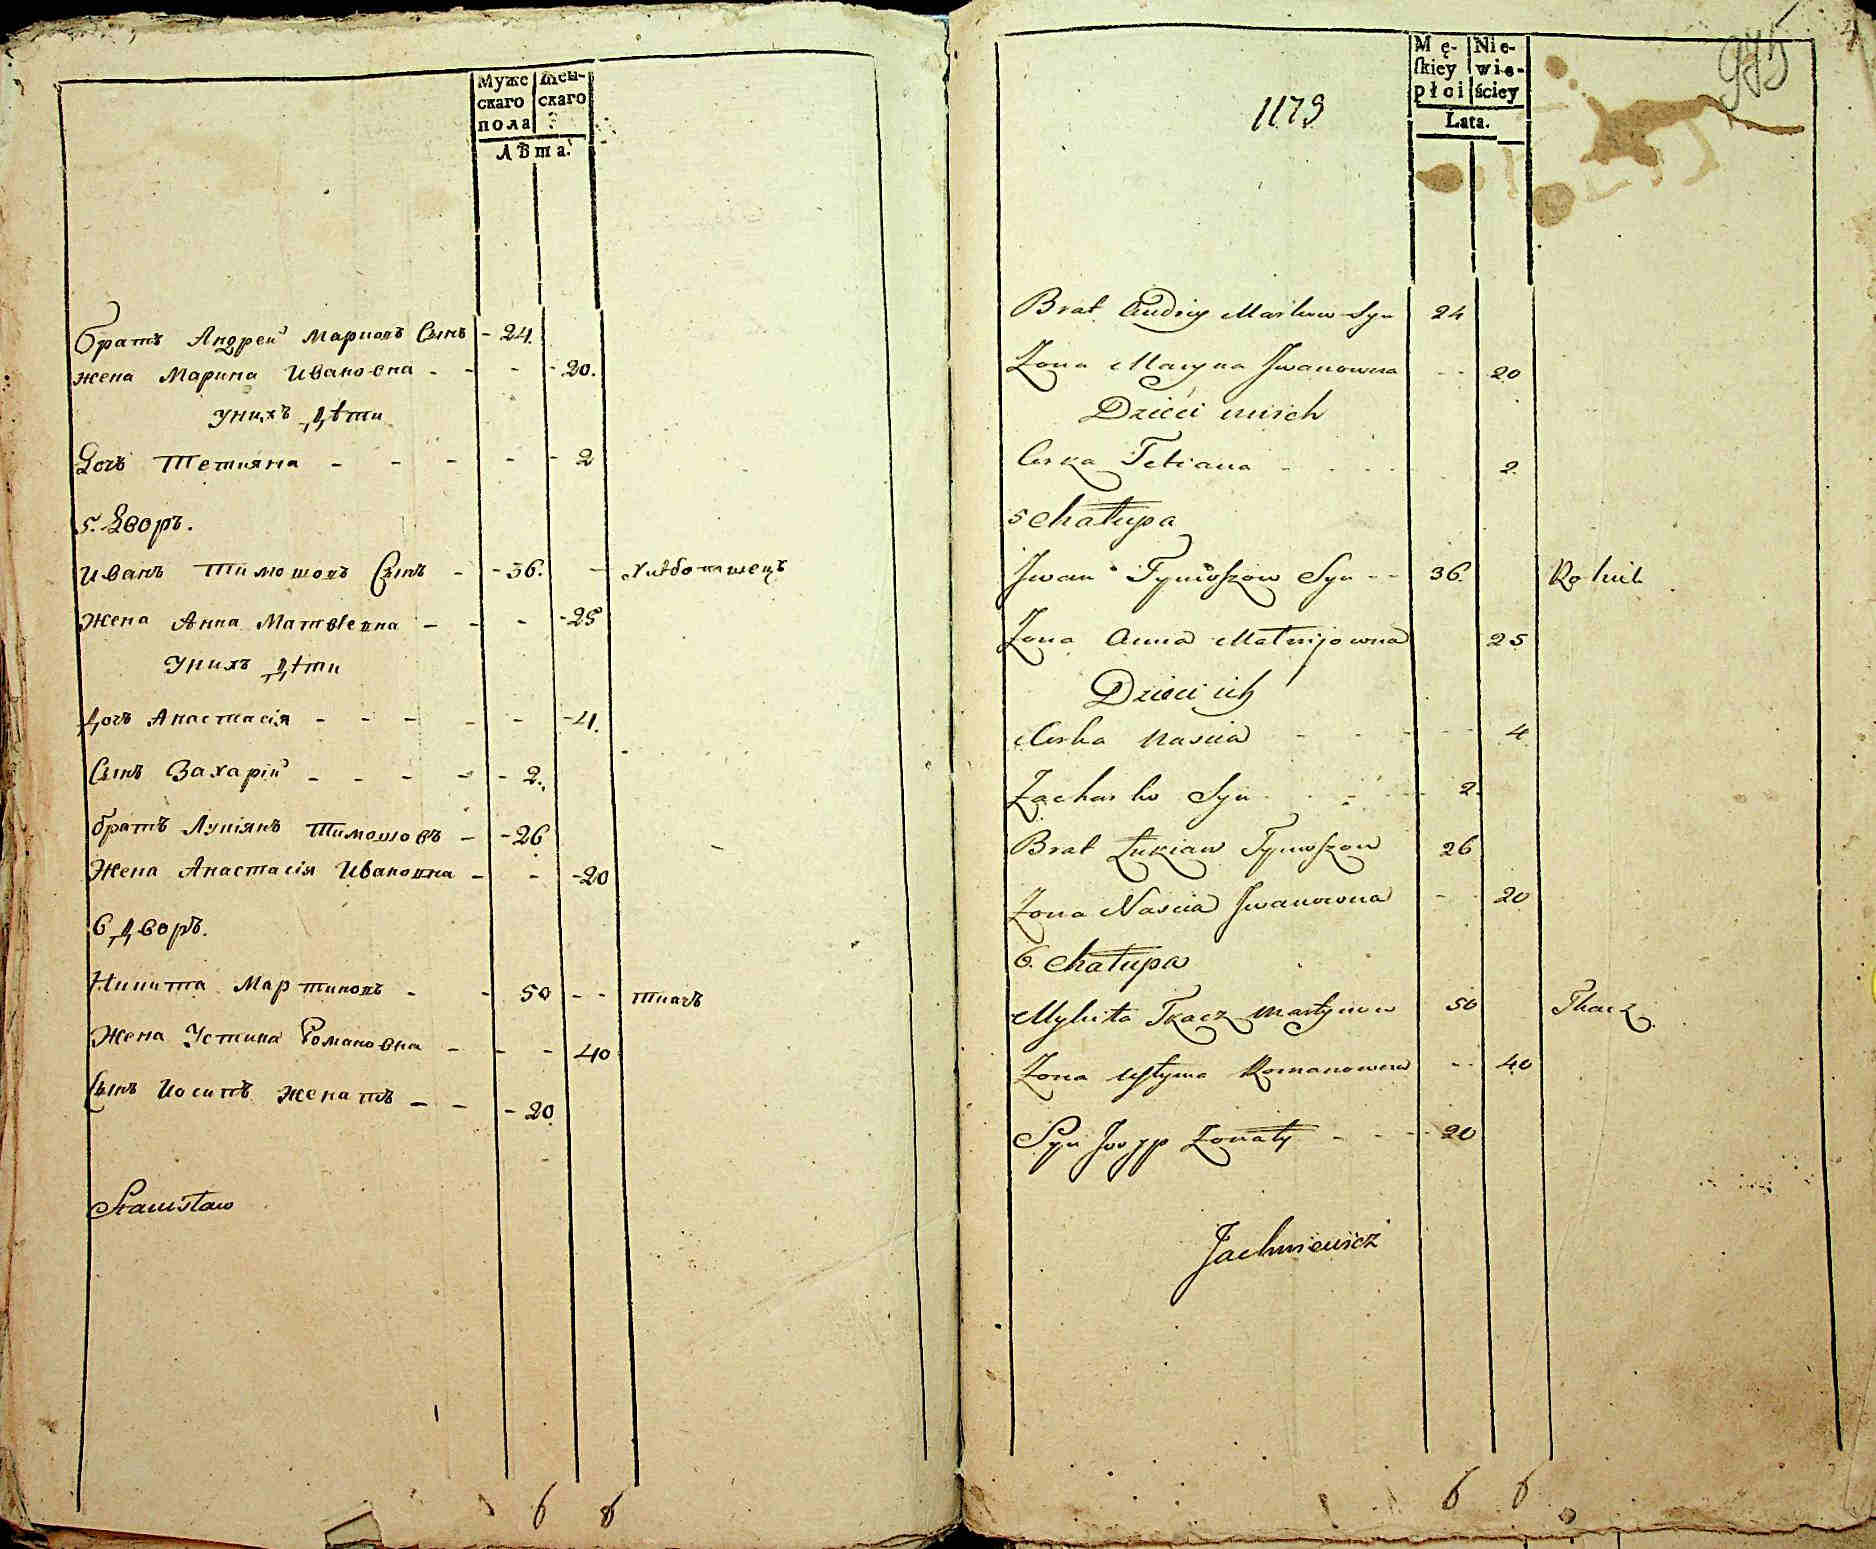 Муже Жен-
скаго скаго
пола
Лѣта.
братъ Андрей Марковъ Сынъ - 24.
жена Марина Ивановна - - - - 20.
Унихъ дѣти
Дочь Тетияна - - - - - 2
5. Дворъ.
Иванъ Тимошовъ Сынъ - - 36. - Хлѣбопашецъ
Жена Анна Матвѣевна - - - - 25
Унихъ дѣти
дочь Анастасія - - - - - - 4.
Сынъ Захарій - - - - - 2.
братъ Лукіянъ Тимошовъ - - 26
Жена Анастасія Ивановна - - - 20
6 дворъ.
Никита Мартиновъ - - 50 - - ткачъ
Жена Устина Романовна - - - 40
Сынъ Иосипъ женатъ - - - 20
Stanisław
6 6
975
1179
Mę- Nie-
ſkiey wie-
płci ściey
Lata.
Brat Andriy Markow Syn 24
Zona Maryna Iwanowna - - 20
Dzieci unich
Corka Tetiana - - - - 2.
5 chałupa
Iwan Tymoszow Syn - - 36. Rolnik
Zona Anna Matwijowna 25
Dzieci ich
Corka Nascia - - - - - 4
Zacharko Syn - - - 2.
Brat Łukian Tymoszow 26
Zona Nascia Iwanowna - - 20
6. chałupa
Mykita Tkacz Martynow 50 Tkacz
Zona Ustyna Romanowna - - 40
Syn Josyp Zonaty - - - 20
Jachniewicz
6 6